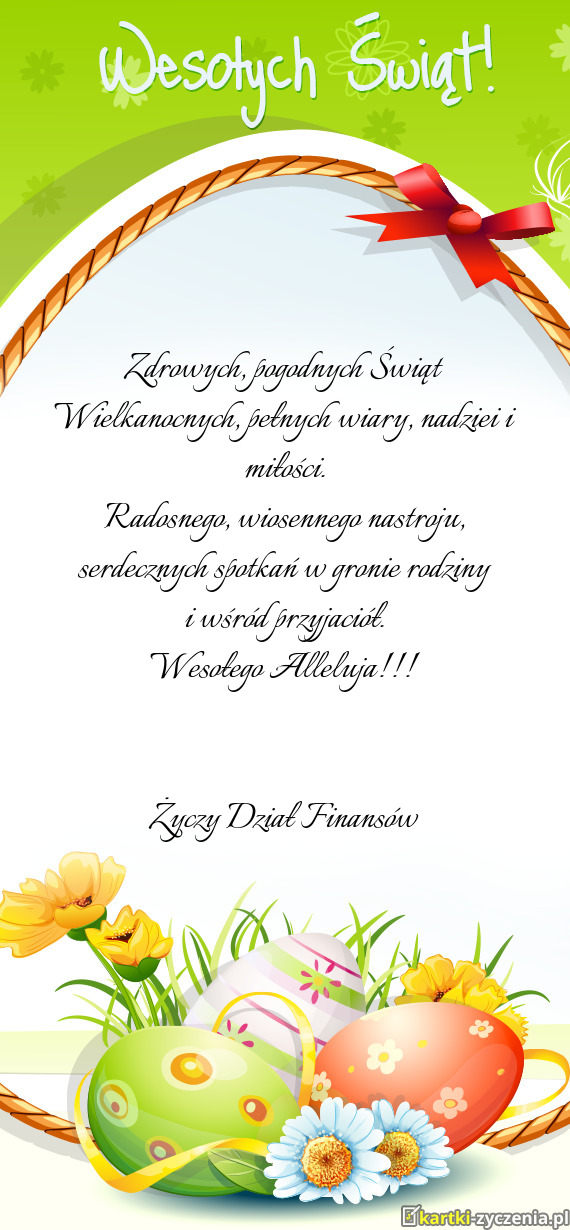 Wesołych Świąt!
Zdrowych, pogodnych Świąt
Wielkanocnych, pełnych wiary, nadziei i
miłości.
Radosnego, wiosennego nastroju,
serdecznych spotkań w gronie rodziny
i wśród przyjaciół.
Wesołego Alleluja!!!
Życzy Dział Finansów
kartki-zyczenia.pl